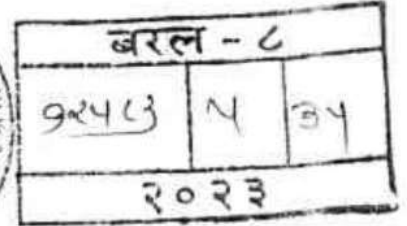 बरल - ८
१२५८३ ५ ३५
२०२३